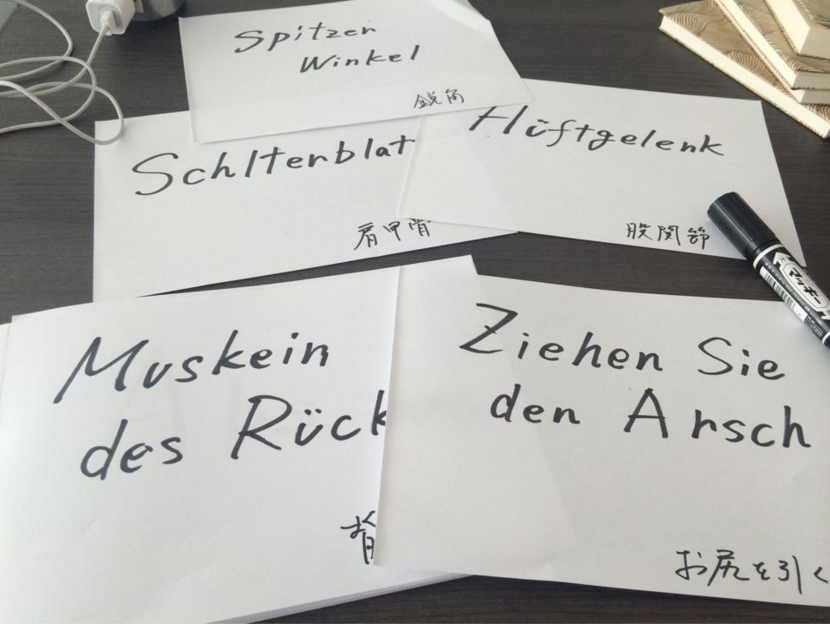 Spitzer
Winkel
鋭角
Schlterblat
肩甲骨
Hüftgelenk
股関節
マッキー
Muskein
des Rück
背
Ziehen Sie
den Arsch
お尻を引く